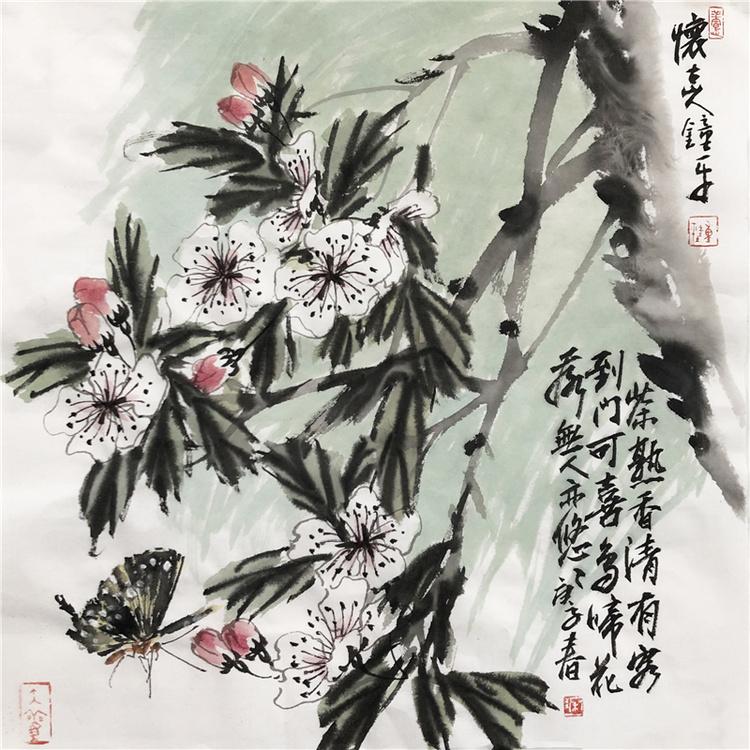 懷鐘
茶熟香清有客
到門可喜鳥啼花
落無人亦悠〻庚子春